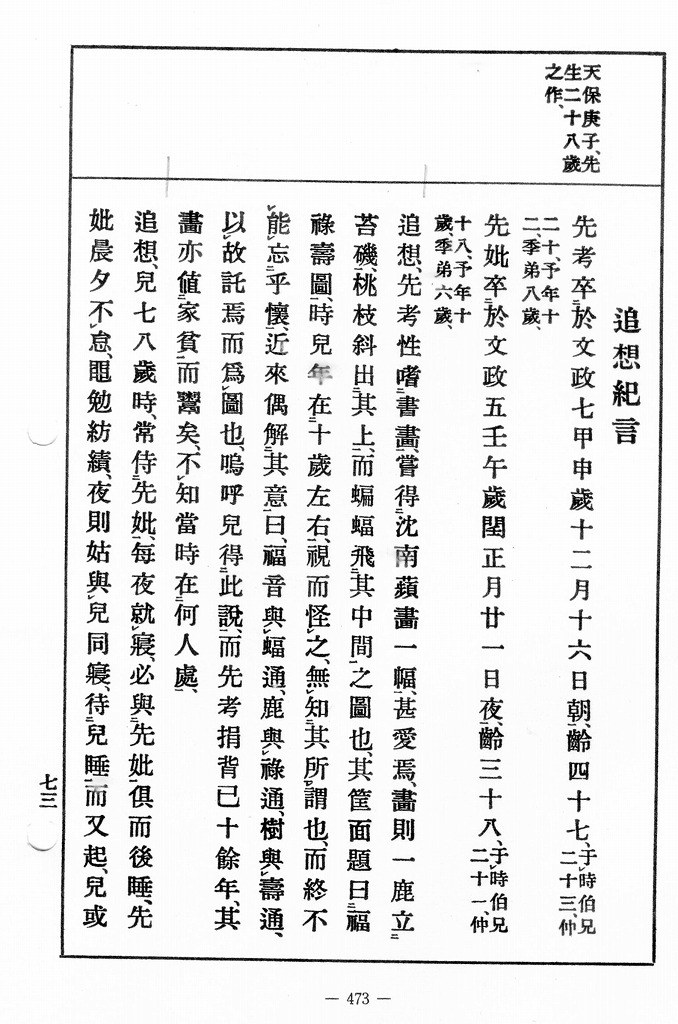 天保庚子、先
生二十八歲
之作、
追想紀言
先考卒於文政七甲申歲十二月十六日朝、齡四十七、于時伯兄
二十三、仲
二十、予年十
二、季弟八歲、
先妣卒於文政五壬午歲閏正月廿一日夜、齡三十八、于時伯兄
二十一、仲
十八、予年十
歲、季弟六歲、
追想、先考性嗜書畫、嘗得沈南蘋畫一幅、甚愛焉、畫則一鹿立
苔磯、桃枝斜出其上、而蝙蝠飛其中間之圖也、其筐面題曰福
祿壽圖、時兒年在十歲左右、視而怪之、無知其所謂也、而終不
能忘乎懷、近來偶解其意曰、福音與蝠通、鹿與祿通、樹與壽通、
以故託焉而爲圖也、嗚呼兒得此說、而先考捐背已十餘年、其
畫亦値家貧而鬻矣、不知當時在何人處、
追想、兒七八歲時、常侍先妣、每夜就寢、必與先妣俱而後睡、先
妣晨夕不怠、黽勉紡績、夜則姑與兒同寢、待兒睡而又起、兒或
七三
— 473 —